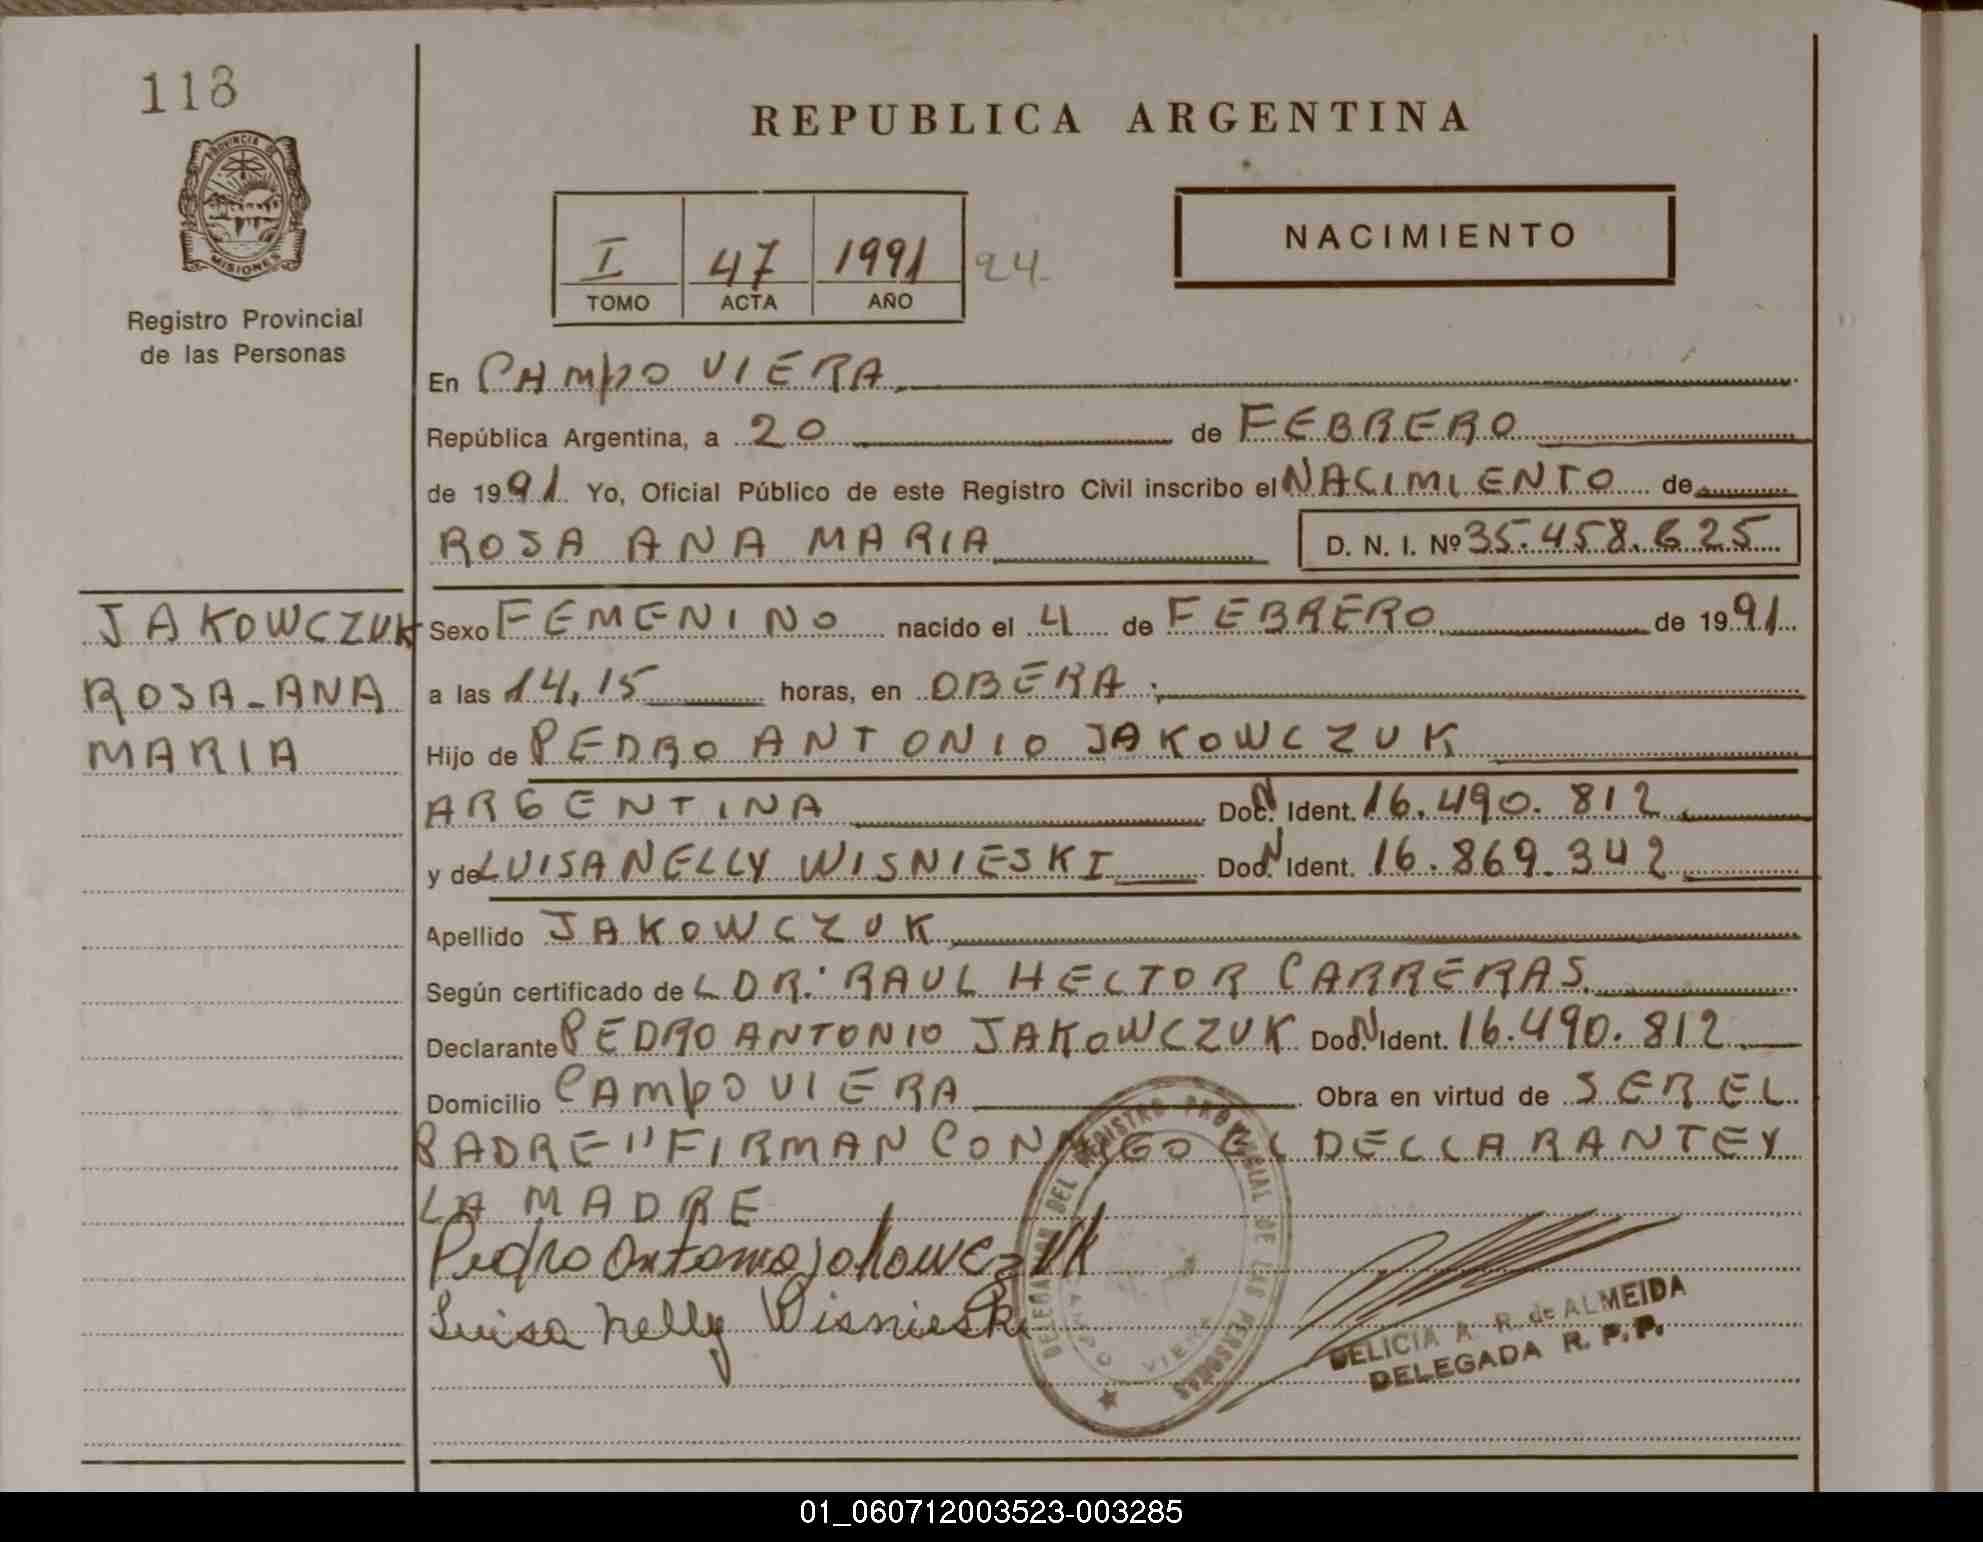 118
REPUBLICA ARGENTINA
PROVINCIA DE
MISIONES
Registro Provincial
de las Personas
I 47 1991 24
TOMO ACTA AÑO
NACIMIENTO
En CAMPO VIERA
República Argentina, a 20 de FEBRERO
de 1991 Yo, Oficial Público de este Registro Civil inscribo el NACIMIENTO de
ROSA ANA MARIA D. N. I. Nº 35.458.625
JAKOWCZUK
ROSA-ANA
MARIA
Sexo FEMENINO nacido el 4 de FEBRERO de 1991
a las 14,15 horas, en OBERA.
Hijo de PEDRO ANTONIO JAKOWCZUK
ARGENTINA Doc. N Ident. 16.490.812
y de LUISA NELLY WISNIESKI Doc. N Ident. 16.869.342
Apellido JAKOWCZUK
Según certificado de L DR. RAUL HECTOR CARRERAS.
Declarante PEDRO ANTONIO JAKOWCZUK Doc. N Ident. 16.490.812
Domicilio CAMPO VIERA Obra en virtud de SER EL
PADRE" FIRMAN CONMIGO EL DECLARANTE Y
LA MADRE
Pedro Antonio Jakowczuk
Luisa Nelly Wisnieski
DELEGACION DEL REGISTRO PROVINCIAL DE LAS PERSONAS
CAMPO VIERA
DELICIA A. R. de ALMEIDA
DELEGADA R. P. P.
01_060712003523-003285